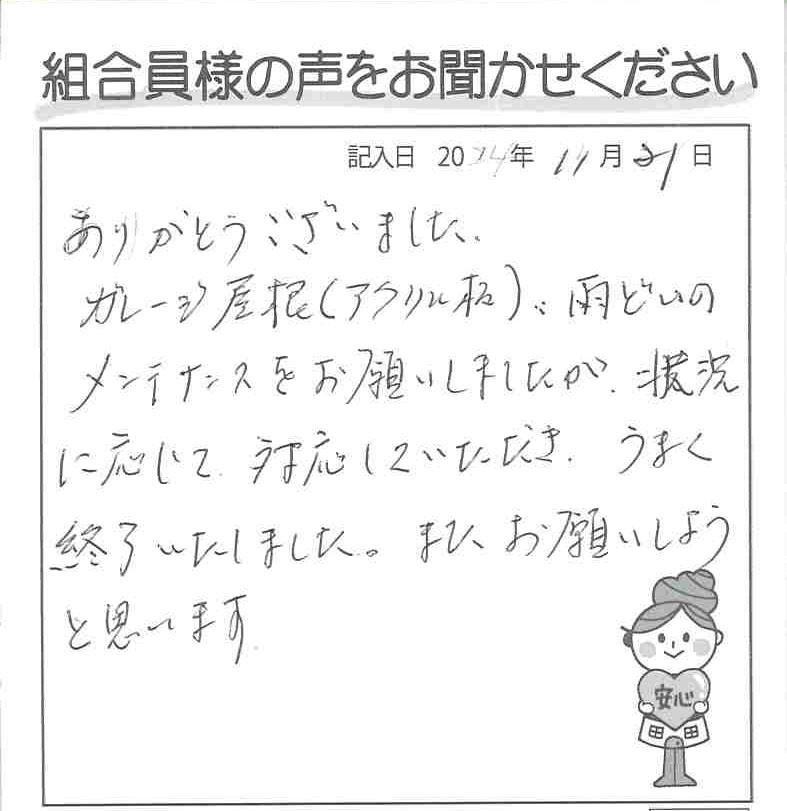 組合員様の声をお聞かせください
記入日 2024年 11月21日
ありがとうございました。
ガレージ屋根(アクリル板)、雨どいの
メンテナンスをお願いしましたが、状況
に応じて、対応していただき、うまく
終了いたしました。また、お願いしよう
と思います。
安心